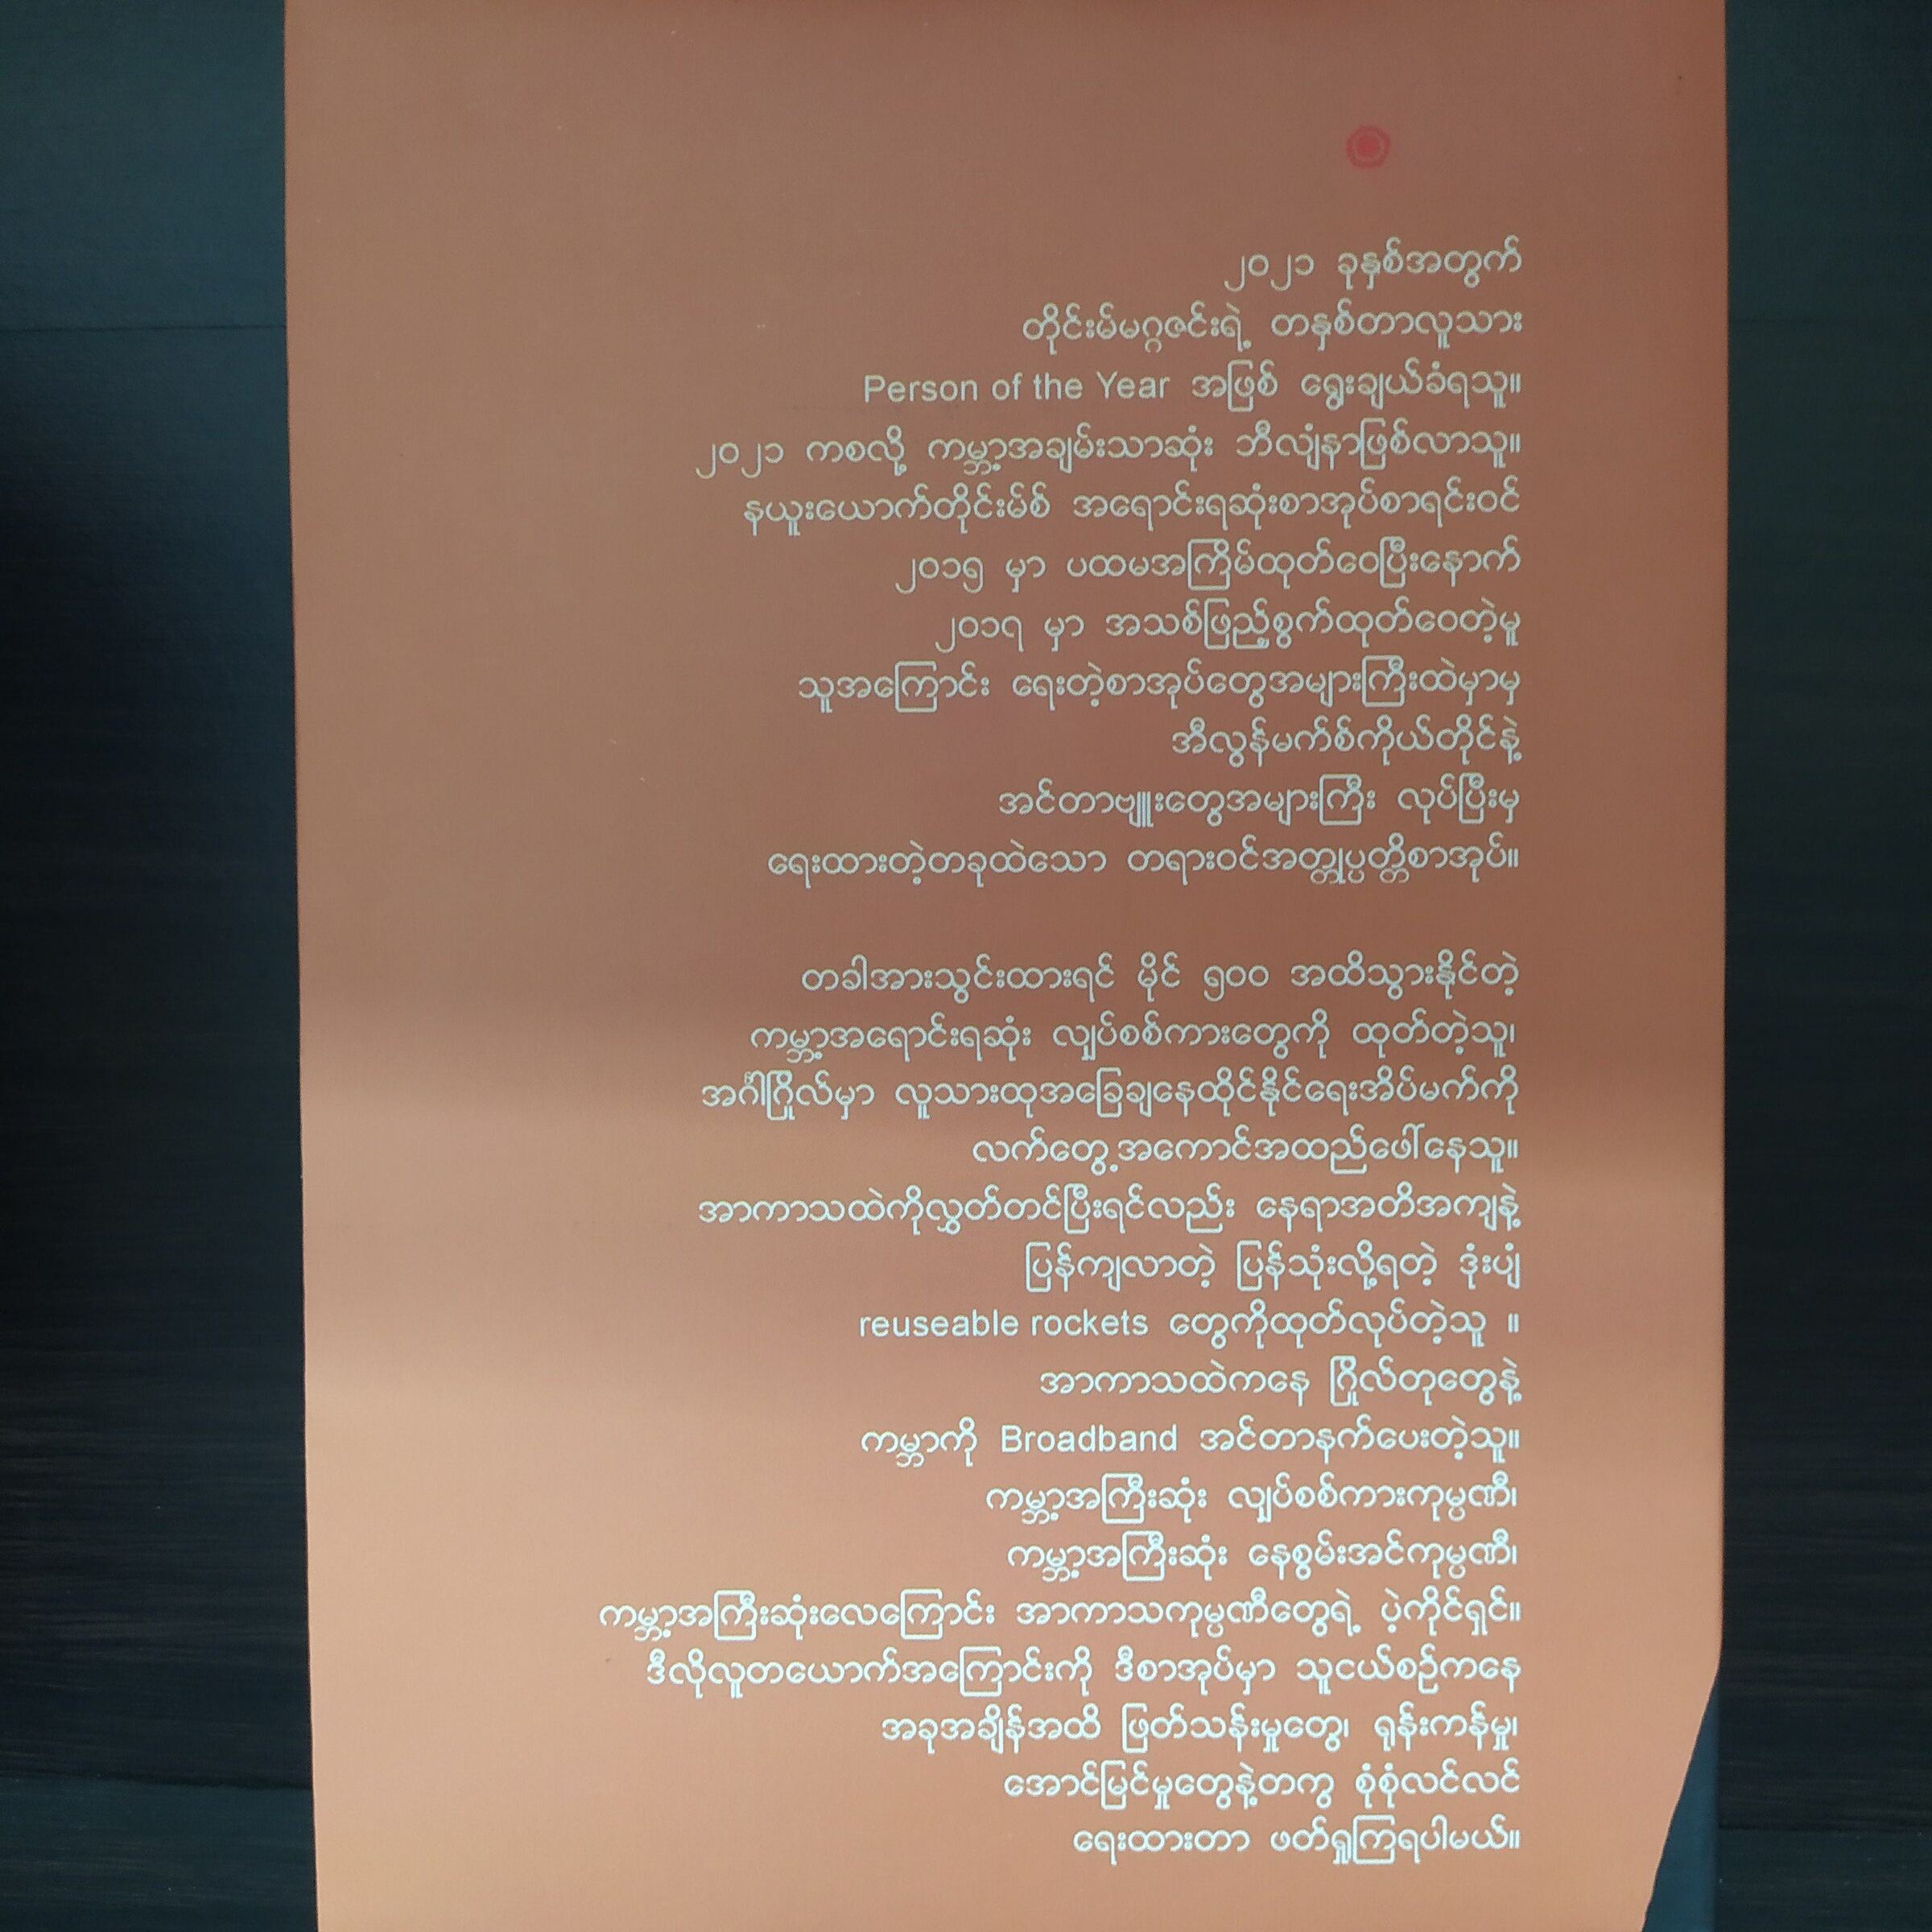 ၂၀၂၁ ခုနှစ်အတွက်
တိုင်းမ်မဂ္ဂဇင်းရဲ့ တနှစ်တာလူသား
Person of the Year အဖြစ် ရွေးချယ်ခံရသူ။
၂၀၂၁ ကစလို့ ကမ္ဘာ့အချမ်းသာဆုံး ဘီလျံနာဖြစ်လာသူ။
နယူးယောက်တိုင်းမ်စ် အရောင်းရဆုံးစာအုပ်စာရင်းဝင်
၂၀၁၅ မှာ ပထမအကြိမ်ထုတ်ဝေပြီးနောက်
၂၀၁၇ မှာ အသစ်ဖြည့်စွက်ထုတ်ဝေတဲ့မူ
သူအကြောင်း ရေးတဲ့စာအုပ်တွေအများကြီးထဲမှာမှ
အီလွန်မက်စ်ကိုယ်တိုင်နဲ့
အင်တာဗျူးတွေအများကြီး လုပ်ပြီးမှ
ရေးထားတဲ့တခုထဲသော တရားဝင်အတ္ထုပ္ပတ္တိစာအုပ်။
တခါအားသွင်းထားရင် မိုင် ၅၀၀ အထိသွားနိုင်တဲ့
ကမ္ဘာ့အရောင်းရဆုံး လျှပ်စစ်ကားတွေကို ထုတ်တဲ့သူ၊
အင်္ဂါဂြိုလ်မှာ လူသားထုအခြေချနေထိုင်နိုင်ရေးအိပ်မက်ကို
လက်တွေ့အကောင်အထည်ဖေါ်နေသူ။
အာကာသထဲကိုလွှတ်တင်ပြီးရင်လည်း နေရာအတိအကျနဲ့
ပြန်ကျလာတဲ့ ပြန်သုံးလို့ရတဲ့ ဒုံးပျံ
reuseable rockets တွေကိုထုတ်လုပ်တဲ့သူ ။
အာကာသထဲကနေ ဂြိုလ်တုတွေနဲ့
ကမ္ဘာကို Broadband အင်တာနက်ပေးတဲ့သူ။
ကမ္ဘာ့အကြီးဆုံး လျှပ်စစ်ကားကုမ္ပဏီ၊
ကမ္ဘာ့အကြီးဆုံး နေစွမ်းအင်ကုမ္ပဏီ၊
ကမ္ဘာ့အကြီးဆုံးလေကြောင်း အာကာသကုမ္ပဏီတွေရဲ့ ပဲ့ကိုင်ရှင်။
ဒီလိုလူတယောက်အကြောင်းကို ဒီစာအုပ်မှာ သူငယ်စဉ်ကနေ
အခုအချိန်အထိ ဖြတ်သန်းမှုတွေ၊ ရုန်းကန်မှု၊
အောင်မြင်မှုတွေနဲ့တကွ စုံစုံလင်လင်
ရေးထားတာ ဖတ်ရှုကြရပါမယ်။